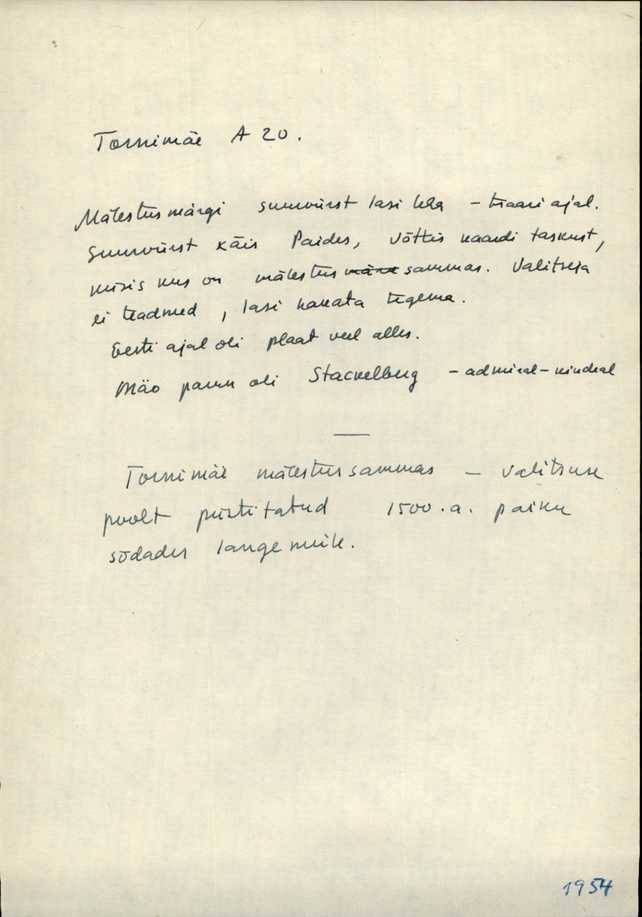 Tornimäe A 20.
Mälestusmärgi suurvürst lasi teha – tsaari ajal.
Suurvürst käis Paides, võttis kaardi taskust,
küsis kus on mälestus sammas. Valitseja
ei teadnud, lasi hakata tegema.
Eesti ajal oli plaat veel alles.
Mäo parun oli Stackelberg – admiral-kindral
Tornimäe mälestussammas – valitsuse
poolt püstitatud 1500.a. paiku
sõdades langenuile.
1954